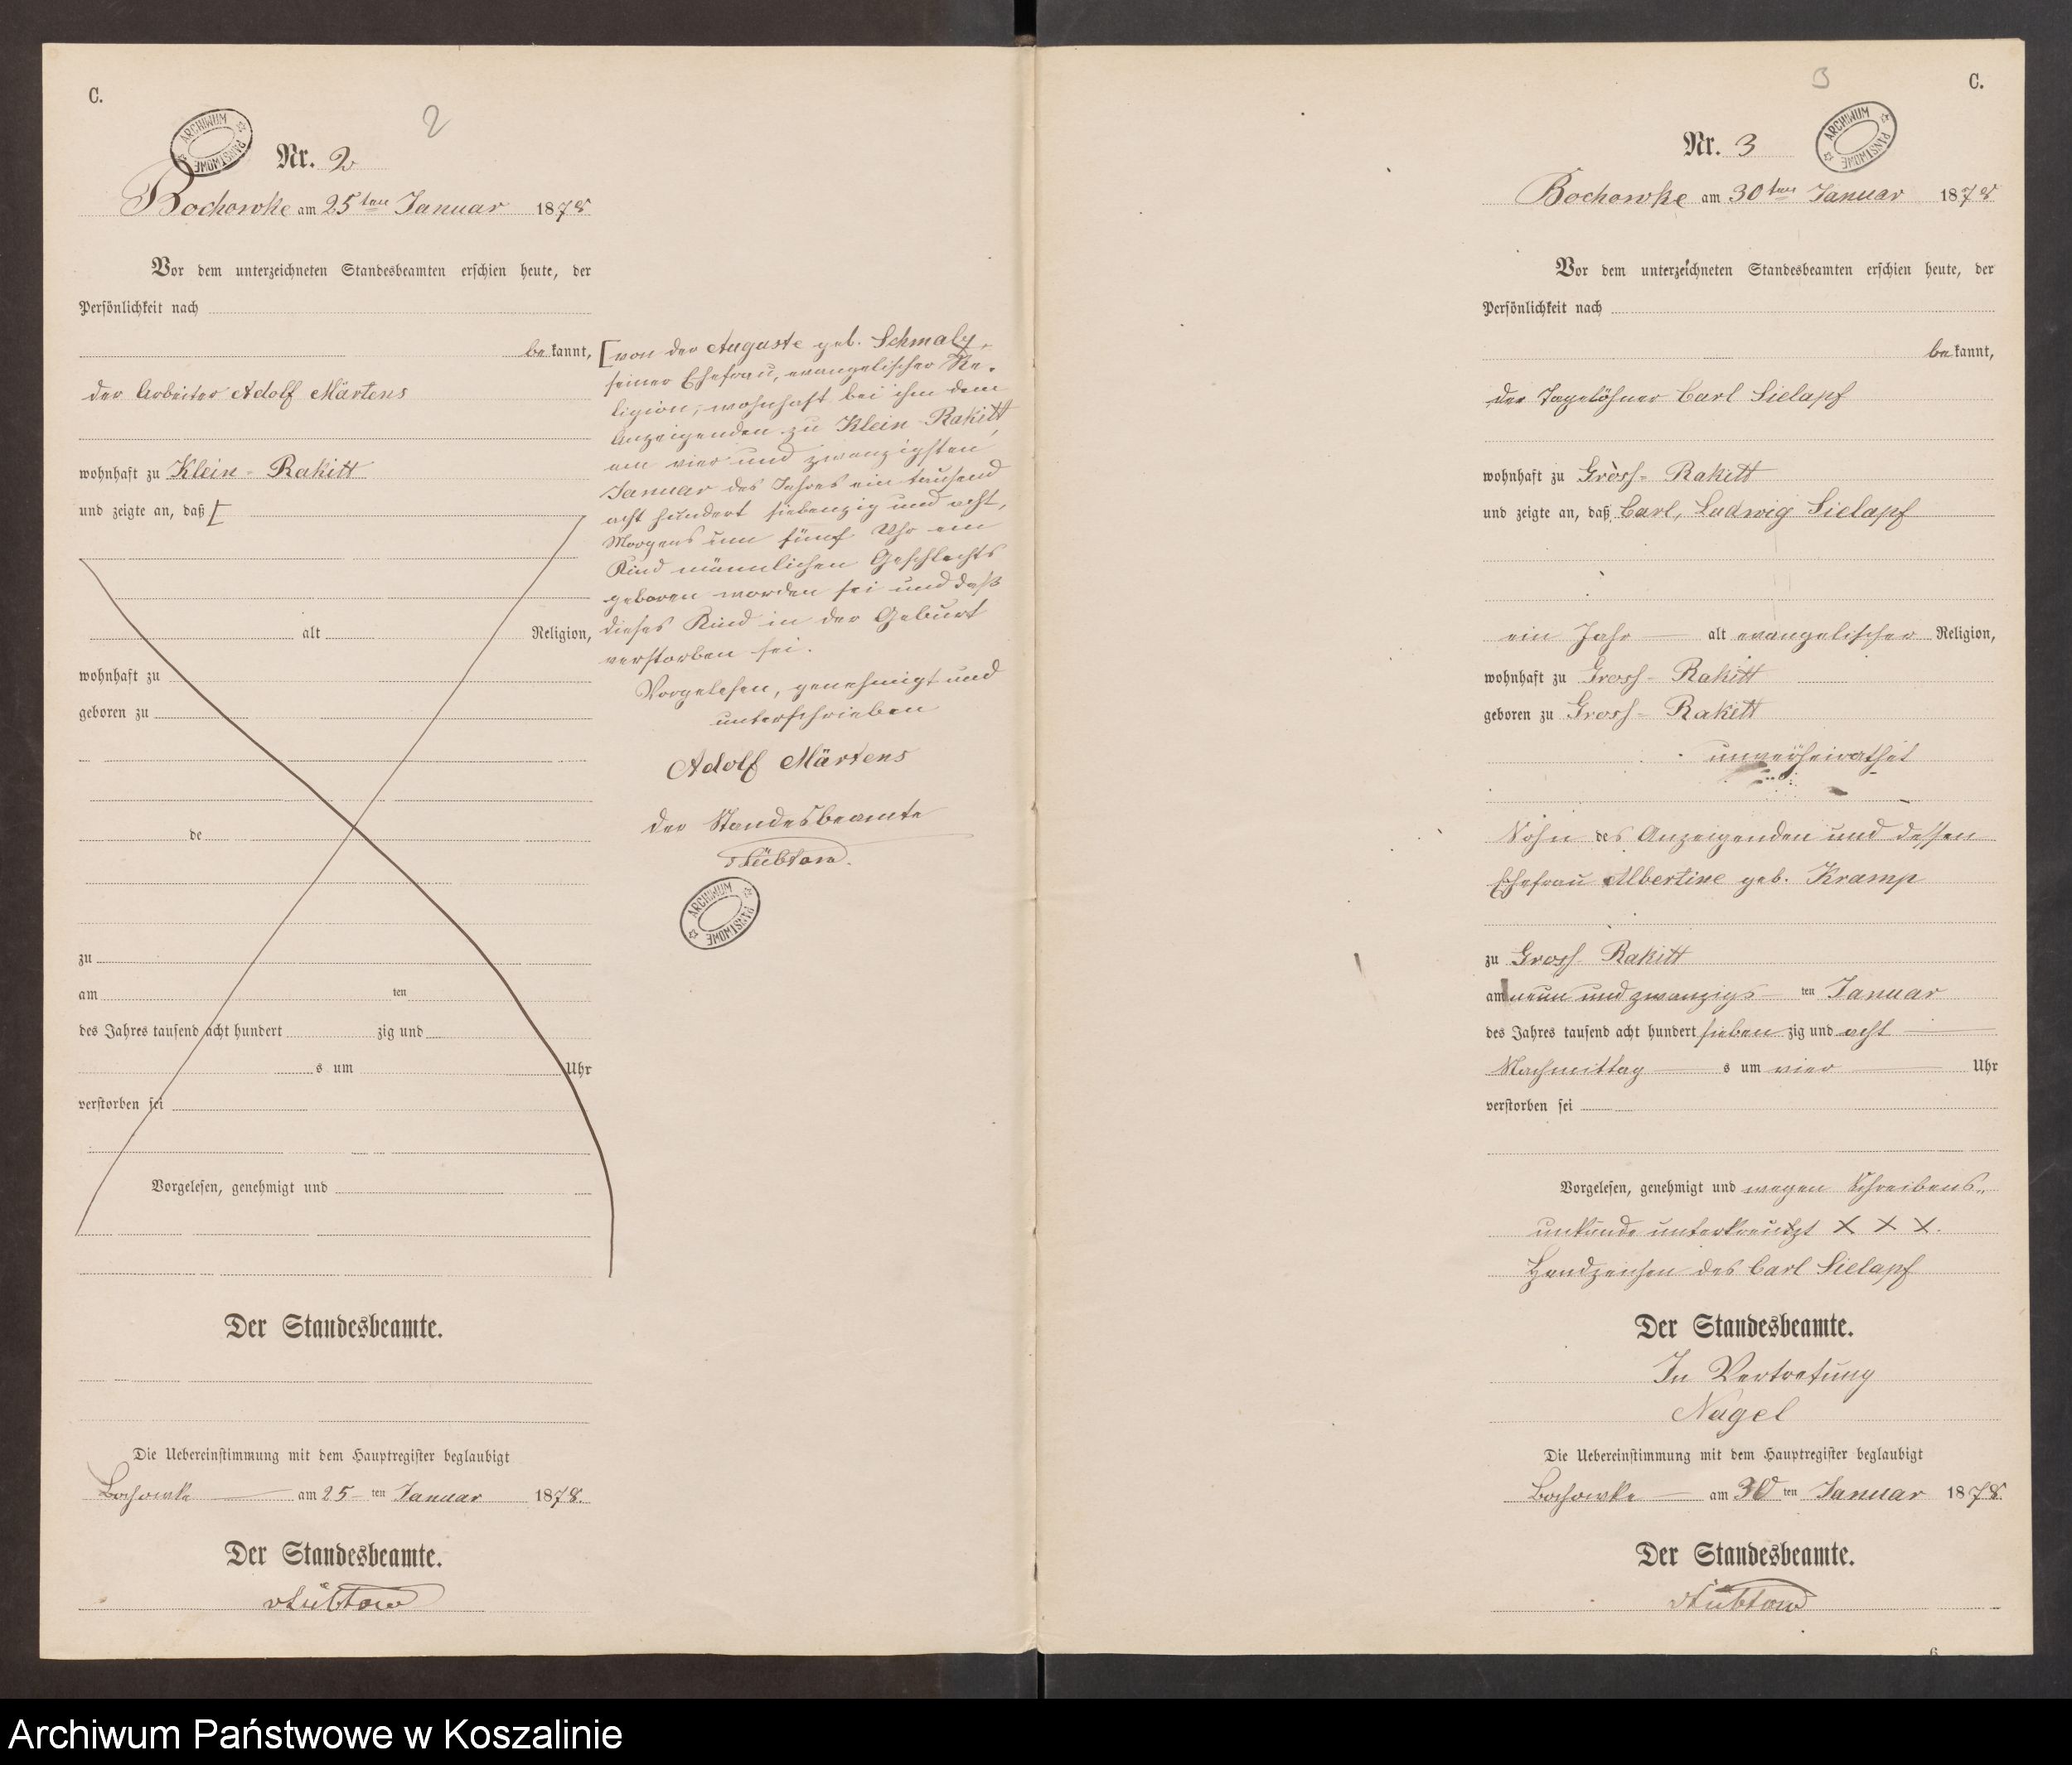 C.
2
ARCHIWUM PAŃSTWOWE
Nr. 2
Bochowke am 25ten Januar 1878
Vor dem unterzeichneten Standesbeamten erschien heute, der
Persönlichkeit nach
bekannt,
der Arbeiter Adolf Märtens
wohnhaft zu Klein-Rakitt
und zeigte an, daß [
alt Religion,
wohnhaft zu
geboren zu
de
zu
am ten
des Jahres tausend acht hundert zig und
s um Uhr
verstorben sei
Vorgelesen, genehmigt und
Der Standesbeamte.
Die Uebereinstimmung mit dem Hauptregister beglaubigt
Bochowke am 25 ten Januar 1878.
Der Standesbeamte.
vStübtow
[von der Auguste geb. Schmalz,
seiner Ehefrau, evangelischer Re-
ligion, wohnhaft bei ihm dem
Anzeigenden zu Klein Rakitt,
am vier und zwanzigsten
Januar des Jahres ein tausend
acht hundert siebenzig und acht,
Morgens um fünf Uhr ein
Kind männlichen Geschlechts
geboren worden sei und daß
dieses Kind in der Geburt
verstorben sei.
Vorgelesen, genehmigt und
unterschrieben
Adolf Märtens
der Standesbeamte
ARCHIWUM PAŃSTWOWE
3
C.
Nr. 3
ARCHIWUM PAŃSTWOWE
Bochowke am 30ten Januar 1878
Vor dem unterzeichneten Standesbeamten erschien heute, der
Persönlichkeit nach
bekannt,
der Tagelöhner Carl Sielapf
wohnhaft zu Gross-Rakitt
und zeigte an, daß Carl, Ludwig Sielapf
ein Jahr alt evangelischer Religion,
wohnhaft zu Gross-Rakitt
geboren zu Gross-Rakitt
unverheirathet
Sohn des Anzeigenden und dessen
Ehefrau Albertine geb. Kramp
zu Gross Rakitt
am neun und zwanzigs ten Januar
des Jahres tausend acht hundert sieben zig und acht
Nachmittag s um vier Uhr
verstorben sei
Vorgelesen, genehmigt und wegen Schreibens-
unkunde unterkreuzt X X X.
Handzeichen des Carl Sielapf
Der Standesbeamte.
In Vertretung
Nagel
Die Uebereinstimmung mit dem Hauptregister beglaubigt
Bochowke am 30 ten Januar 1878.
Der Standesbeamte.
6
Archiwum Państwowe w Koszalinie